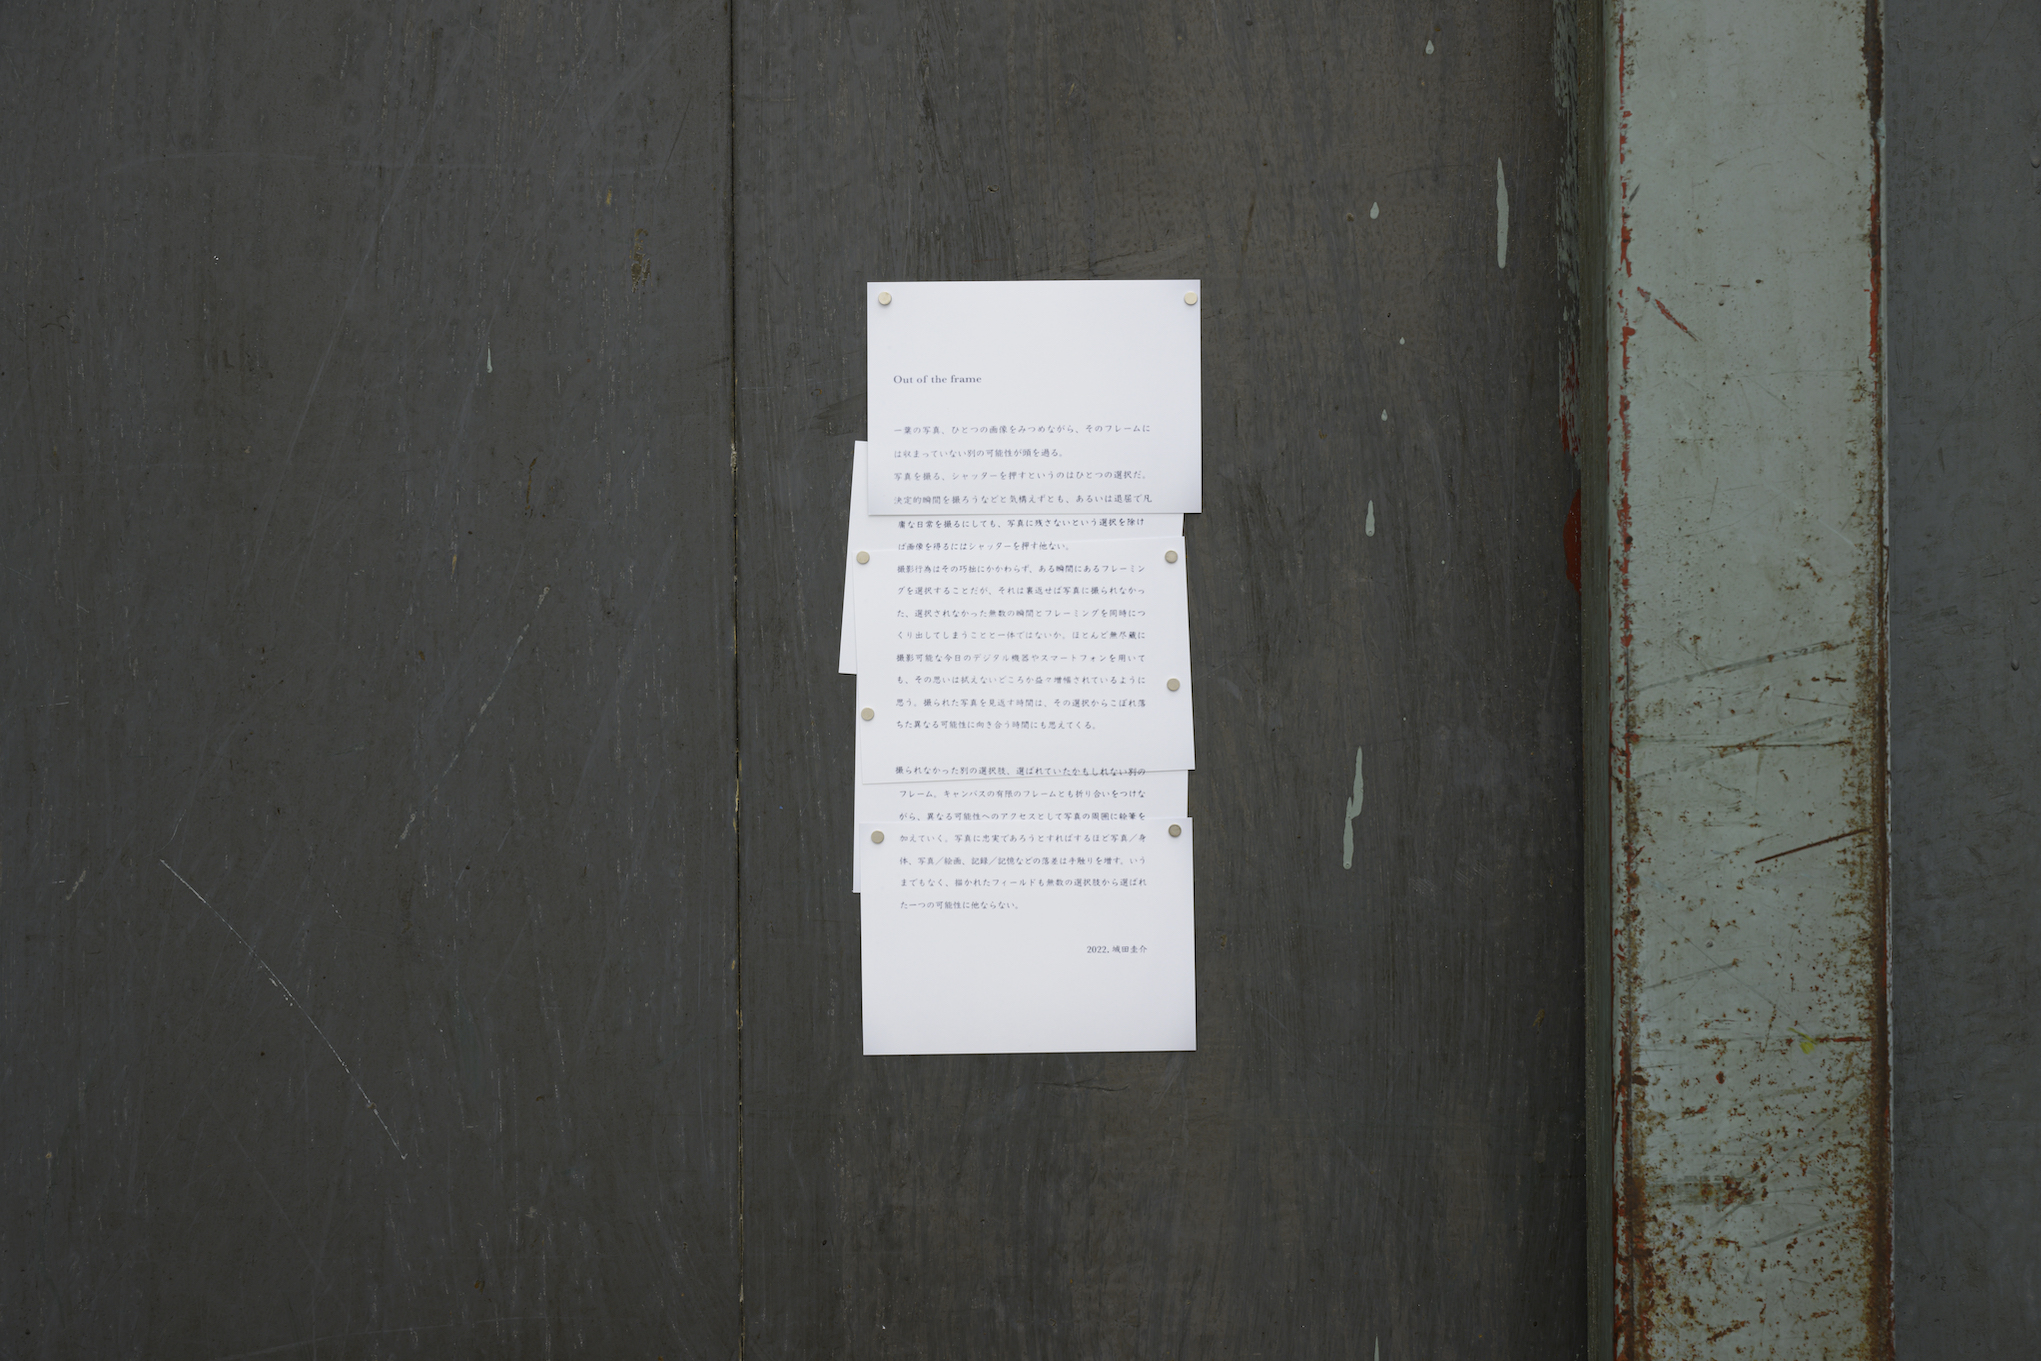 Out of the frame
一葉の写真、ひとつの画像をみつめながら、そのフレームに
は収まっていない別の可能性が頭を過る。
写真を撮る、シャッターを押すというのはひとつの選択だ。
決定的瞬間を撮ろうなどと気構えずとも、あるいは退屈で凡
庸な日常を撮るにしても、写真に残さないという選択を除け
ば画像を得るにはシャッターを押す他ない。
撮影行為はその巧拙にかかわらず、ある瞬間にあるフレーミン
グを選択することだが、それは裏返せば写真に撮られなかっ
た、選択されなかった無数の瞬間とフレーミングを同時につ
くり出してしまうことと一体ではないか。ほとんど無尽蔵に
撮影可能な今日のデジタル機器やスマートフォンを用いて
も、その思いは拭えないどころか益々増幅されているように
思う。撮られた写真を見返す時間は、その選択からこぼれ落
ちた異なる可能性に向き合う時間にも思えてくる。
撮られなかった別の選択肢、選ばれていたかもしれない別の
フレーム。キャンバスの有限のフレームとも折り合いをつけな
がら、異なる可能性へのアクセスとして写真の周囲に絵筆を
加えていく。写真に忠実であろうとすればするほど写真／身
体、写真／絵画、記録／記憶などの落差は手触りを増す。いう
までもなく、描かれたフィールドも無数の選択肢から選ばれ
た一つの可能性に他ならない。
2022, 城田圭介